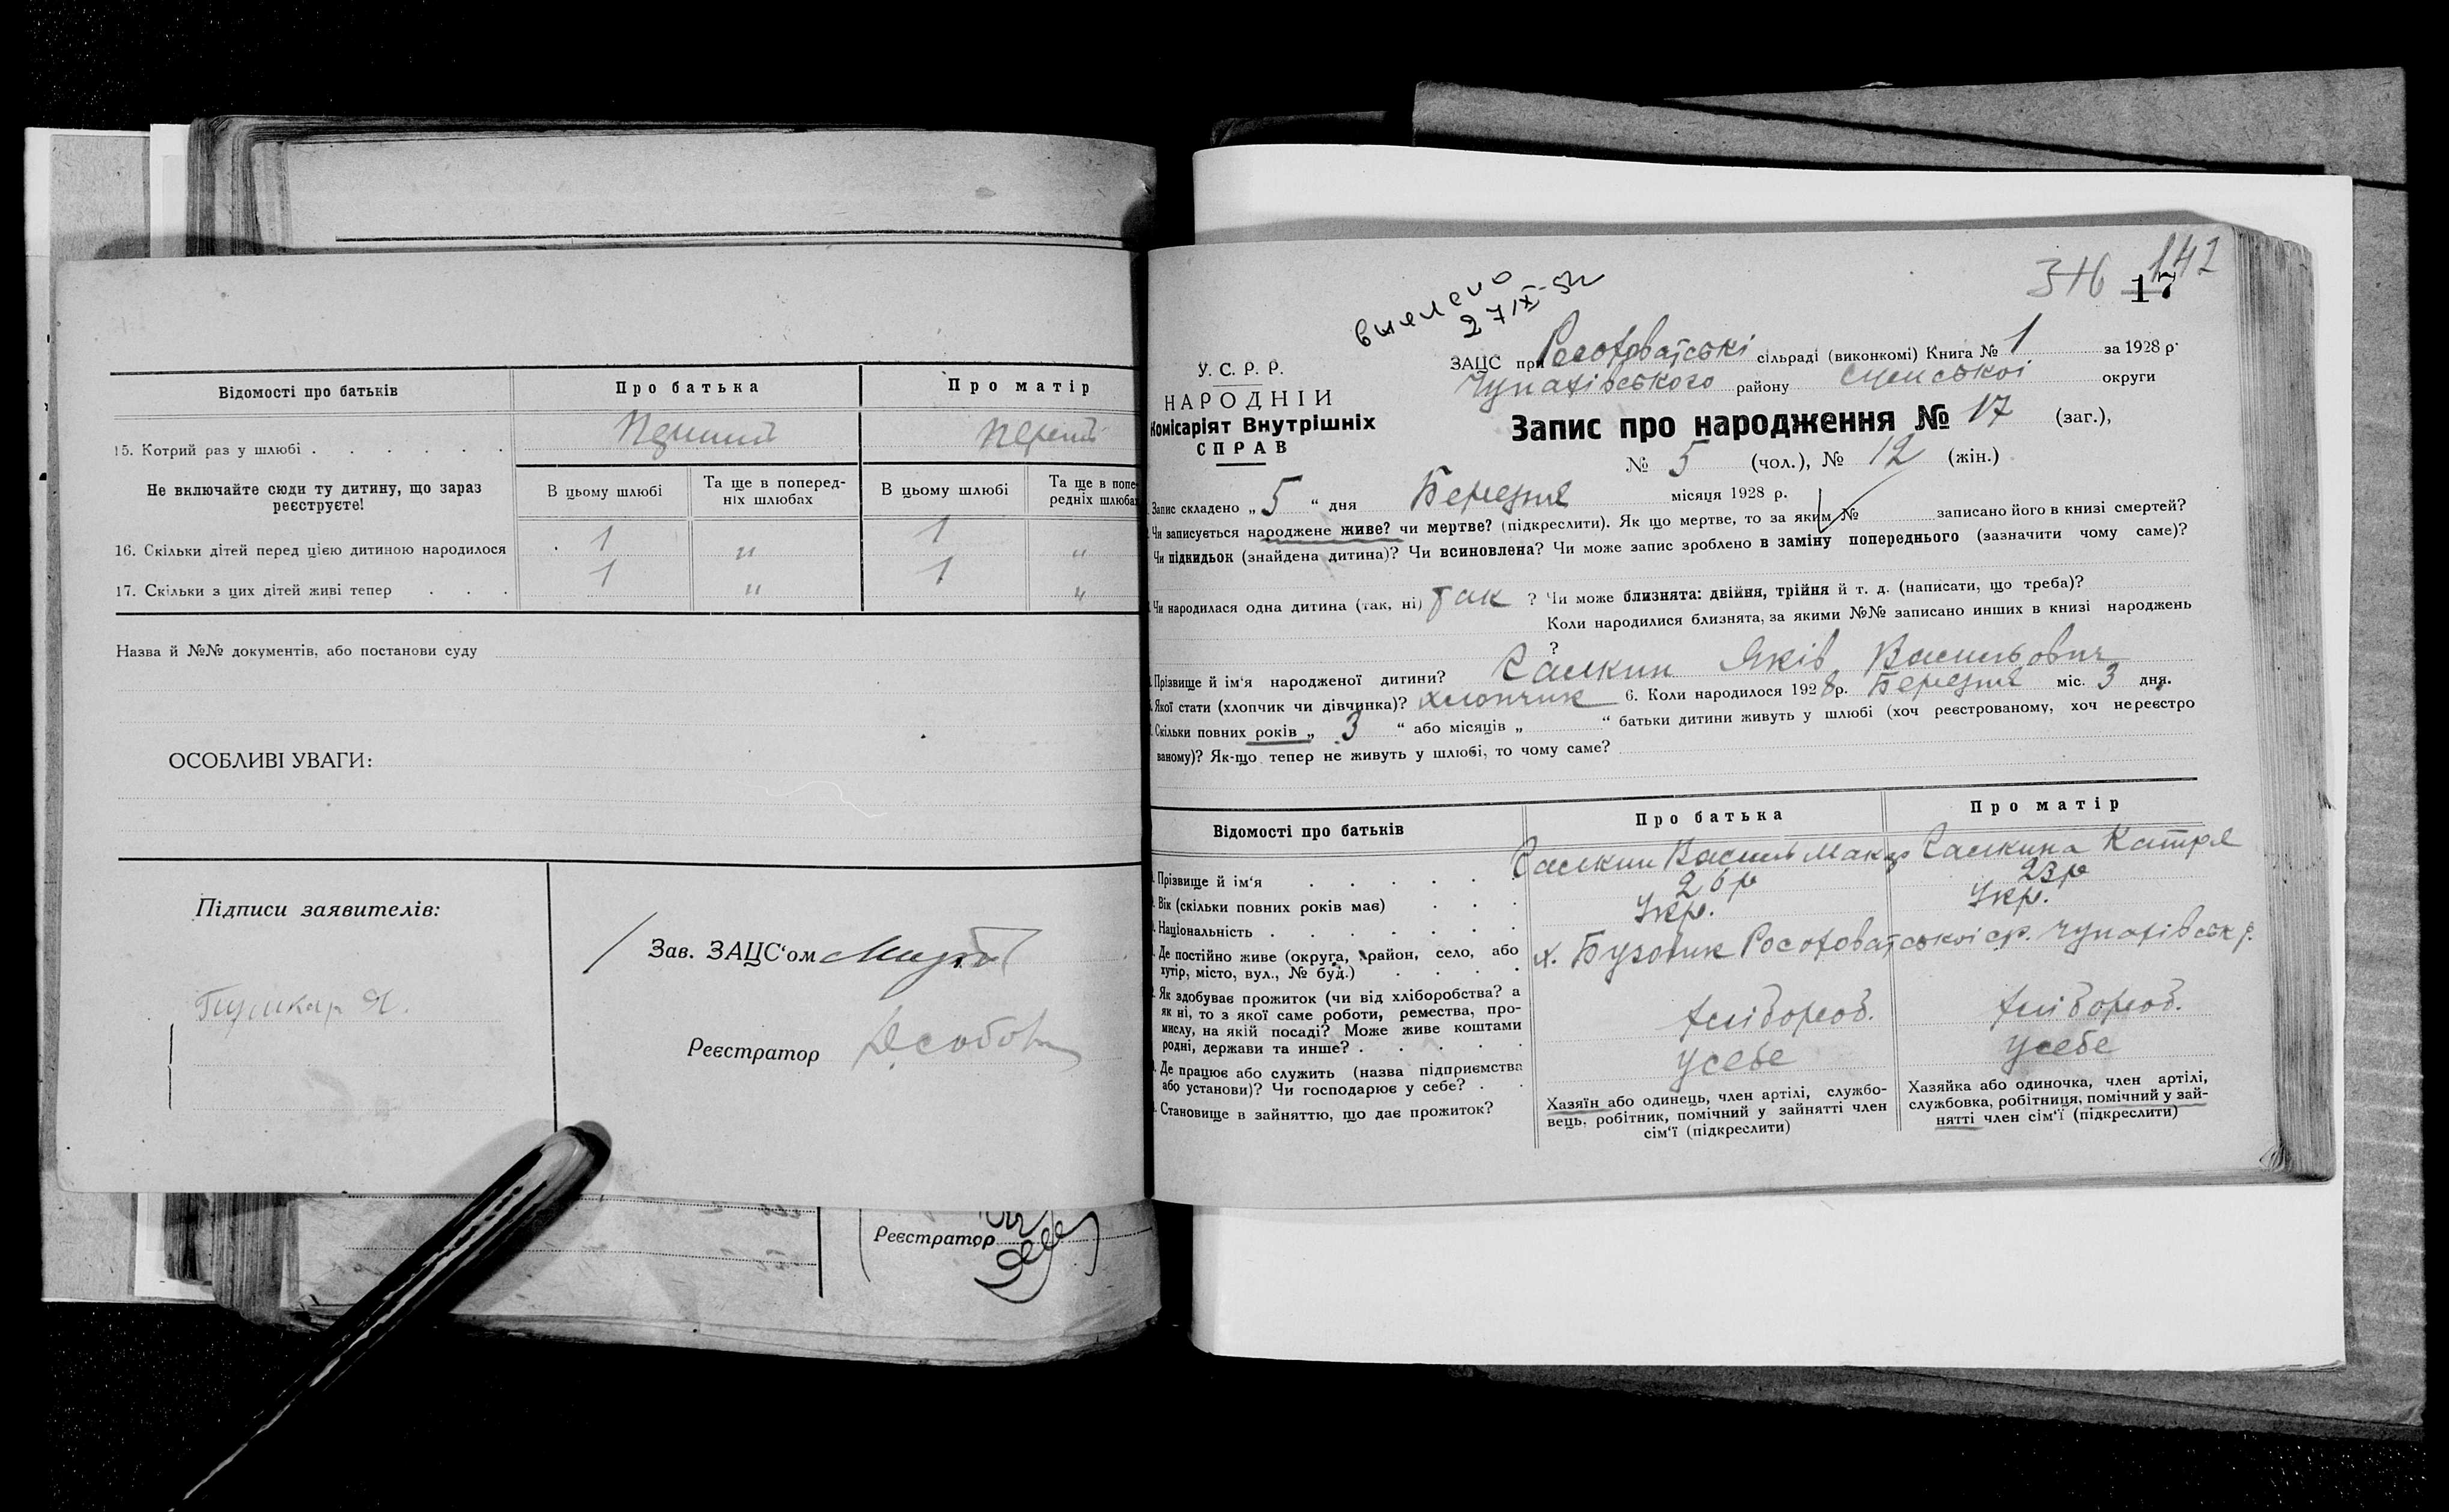 Відомості про батьків
Про батька
Про матір
15. Котрий раз у шлюбі . . . . . .
Перший
Перший
Не включайте сюди ту дитину, що зараз
реєструєте!
В цьому шлюбі
Та ще в поперед-
ніх шлюбах
В цьому шлюбі
Та ще в попе-
редніх шлюбах
16. Скільки дітей перед цією дитиною народилося
1
"
1
"
17. Скільки з цих дітей живі тепер . . .
1
"
1
"
Назва й №№ документів, або постанови суду
ОСОБЛИВІ УВАГИ:
Підписи заявителів:
Зав. ЗАЦС'ом
Реєстратор
Реєстратор
316 142
17
27/IX-52
У. С. Р. Р.
НАРОДНІЙ
Комісаріят Внутрішніх
СПРАВ
ЗАЦС при Росоховатські сільраді (виконкомі) Книга № 1 за 1928 р.
Чупахівського району Сумської округи
Запис про народження № 17 (заг.),
№ 5 (чол.), № 12 (жін.)
Запис складено „ 5 " дня Березня місяця 1928 р.
Чи записується народжене живе? чи мертве? (підкреслити). Як що мертве, то за яким № записано його в книзі смертей?
Чи підкидьок (знайдена дитина)? Чи всиновлена? Чи може запис зроблено в заміну попереднього (зазначити чому саме)?
Чи народилася одна дитина (так, ні) так ? Чи може близнята: двійня, трійня й т. д. (написати, що треба)?
Коли народилися близнята, за якими №№ записано инших в книзі народжень
?
Прізвище й ім'я народженої дитини? Галкин Яків Васильович
Якої стати (хлопчик чи дівчинка)? хлопчик 6. Коли народилося 1928 р. Березня міс. 3 дня.
Скільки повних років „ 3 " або місяців „ " батьки дитини живуть у шлюбі (хоч реєстрованому, хоч нереєстро
ваному)? Як-що тепер не живуть у шлюбі, то чому саме?
Відомості про батьків
Про батька
Про матір
Прізвище й ім'я . . . . .
Галкин Василь Макар
Галкина Катря
Вік (скільки повних років має) . . .
26 р
23 р
Національність . . . . . . .
Укр.
Укр.
Де постійно живе (округа, район, село, або
хутір, місто, вул., № буд.) . . . .
х. Бузовик Росоховатської с.р. Чупахівськ р.
Як здобуває прожиток (чи від хліборобства? а
як ні, то з якої саме роботи, ремества, про-
мислу, на якій посаді? Може живе коштами
родні, держави та инше? . . . . .
хлібороб.
хлібороб.
Де працює або служить (назва підприємства
або установи)? Чи господарює у себе? . .
у себе
у себе
Становище в зайняттю, що дає прожиток?
Хазяїн або одинець, член артілі, службо-
вець, робітник, помічний у зайнятті член
сім'ї (підкреслити)
Хазяйка або одиночка, член артілі,
службовка, робітниця, помічний у зай-
нятті член сім'ї (підкреслити)